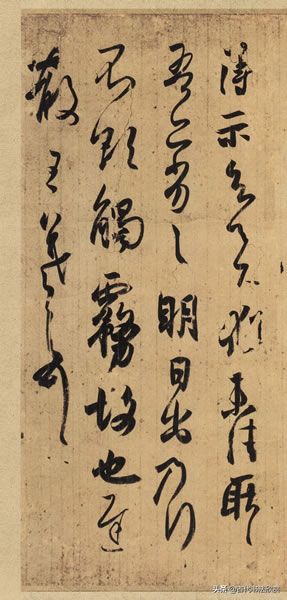 得示知足下猶未佳耿耿
吾亦劣劣明日出乃行
不欲觸霧故也遲
散王羲之頓首
头条